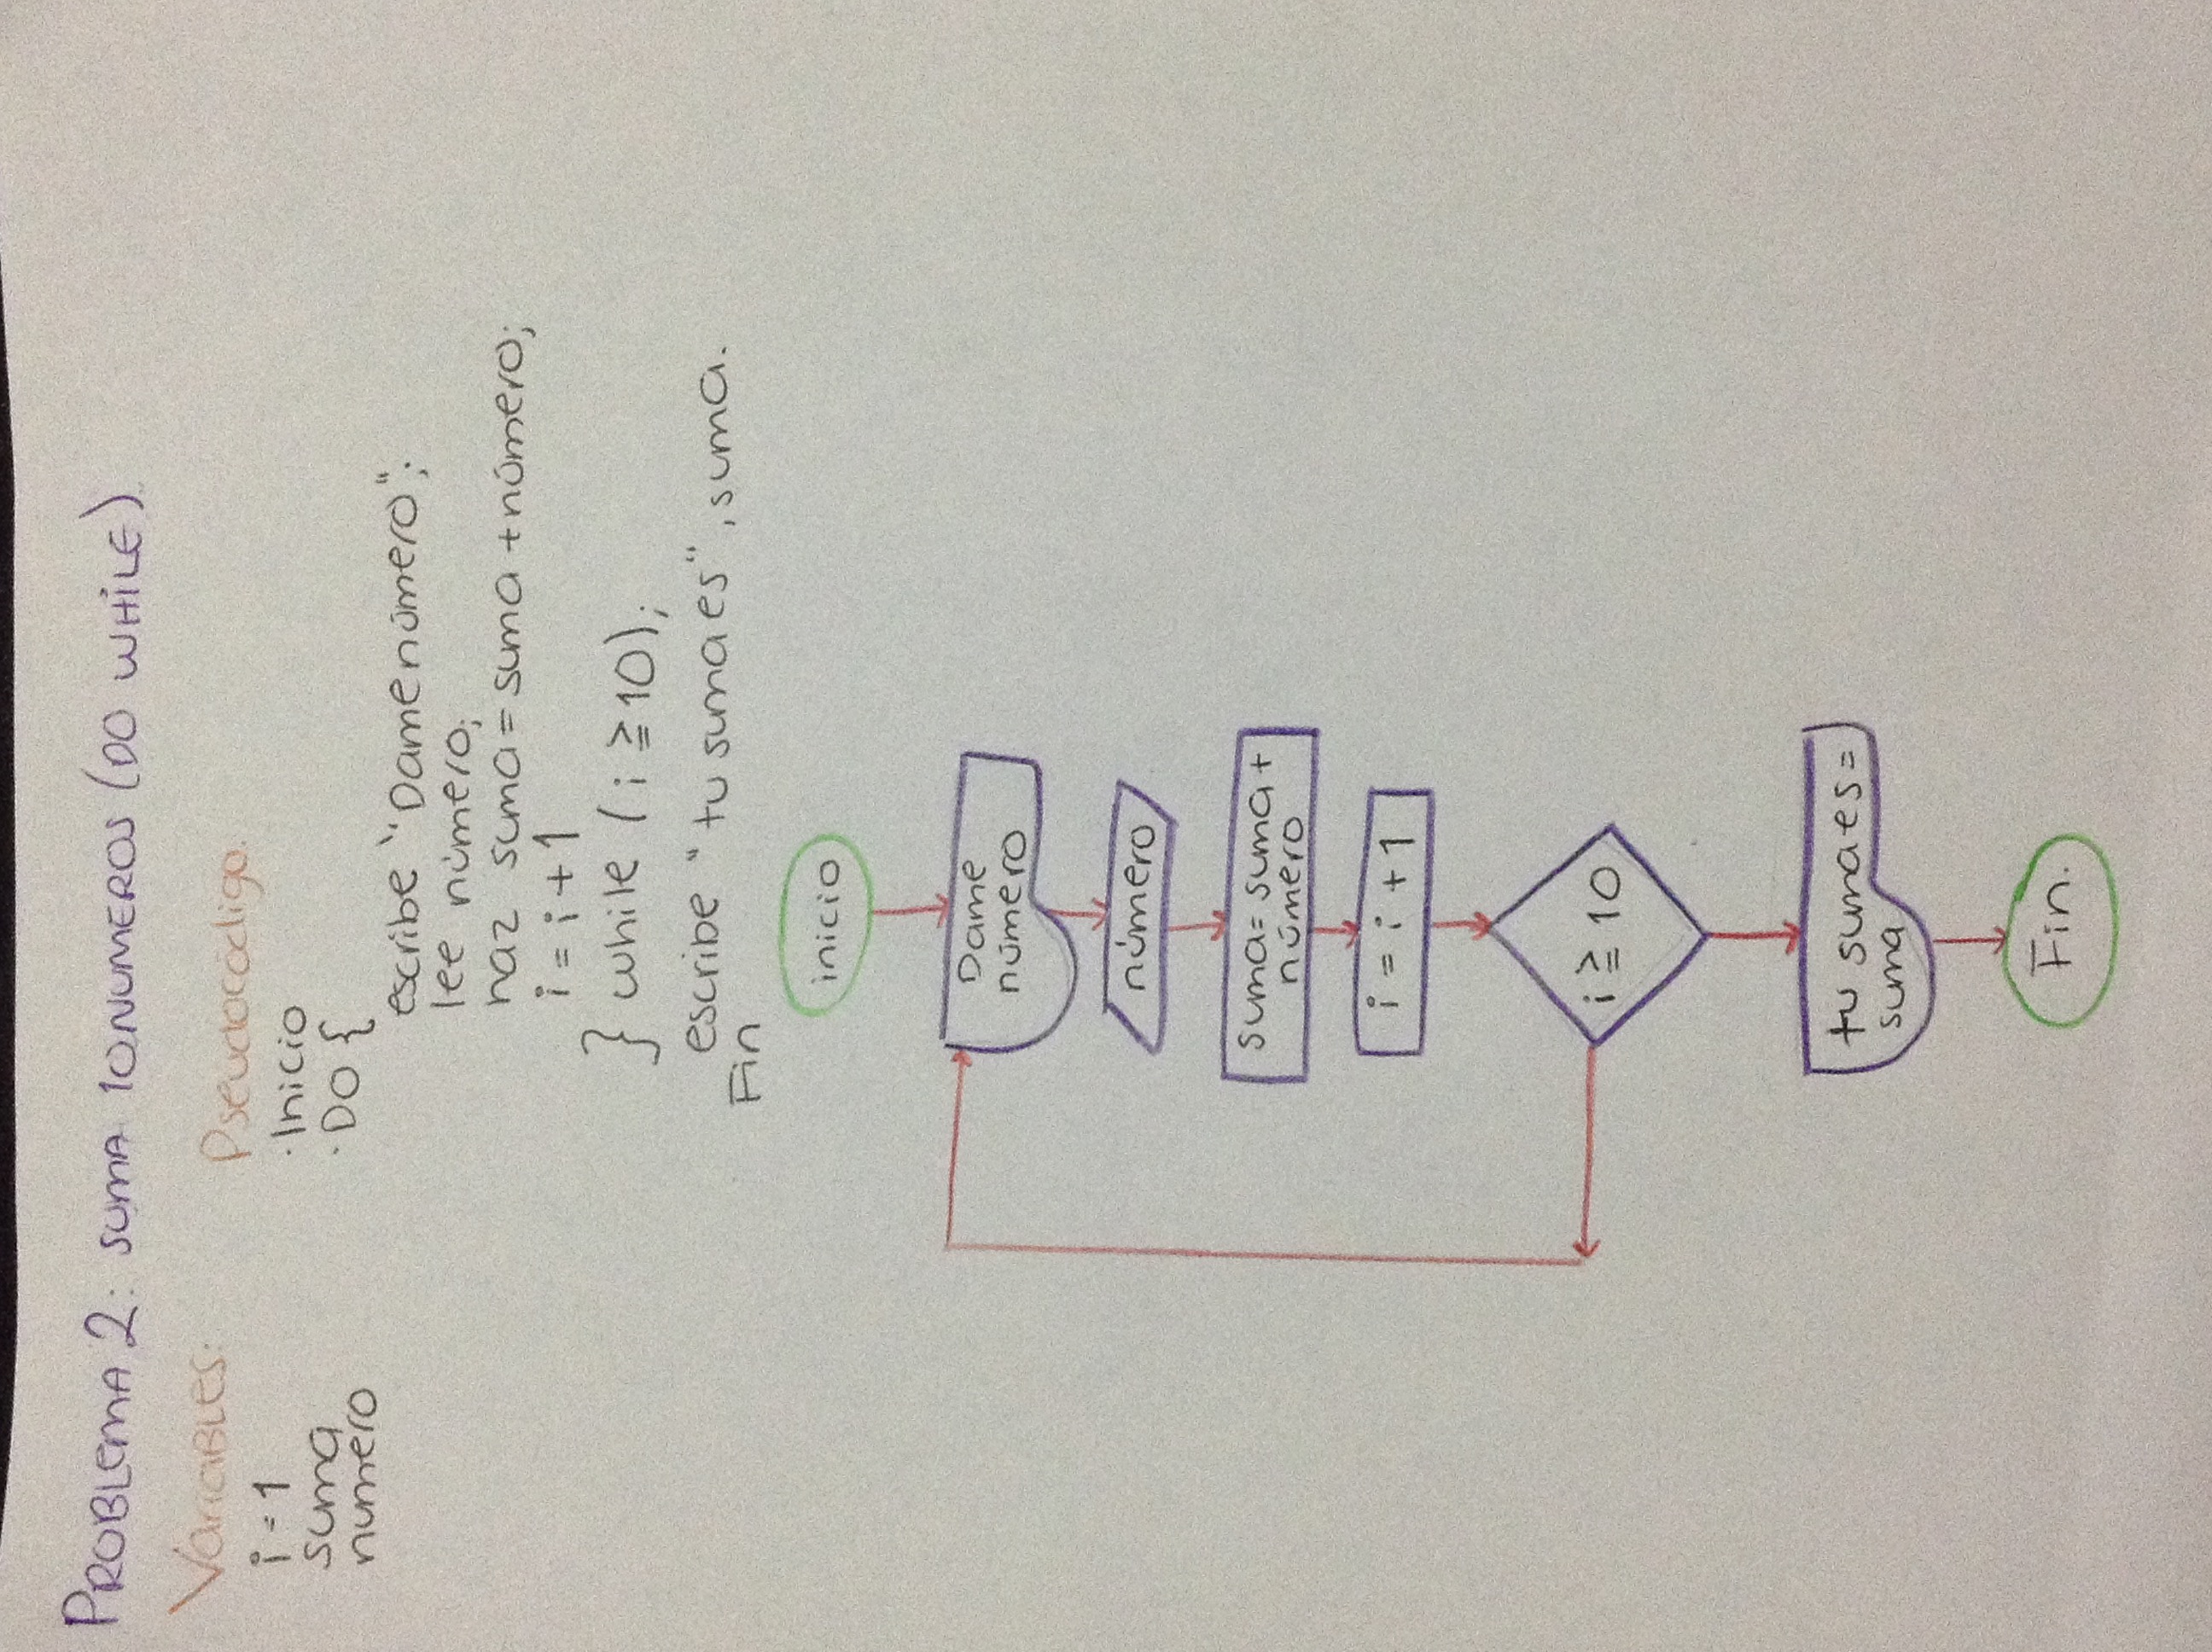 PROBLEMA 2: SUMA 10 NUMEROS (DO WHILE)
VARIABLES:
i = 1
suma
numero
Pseudocódigo.
· Inicio
· DO {
escribe "Dame número";
lee número;
haz suma = suma + número;
i = i + 1
} while ( i ≧ 10 );
escribe "tu suma es", suma.
Fin
inicio
Dame
número
número
suma = suma +
número
i = i + 1
i ≧ 10
tu suma es =
suma
Fin.